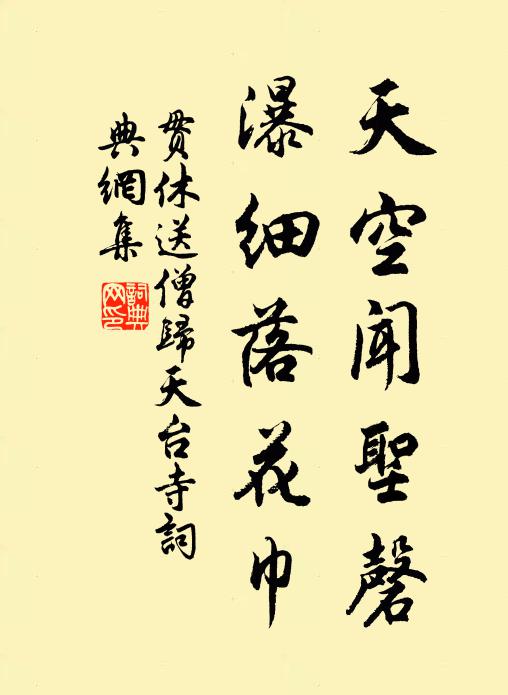 天空聞聖磬
瀑細落花巾
貫休送僧歸天台寺詞
典網集
詞典
网印